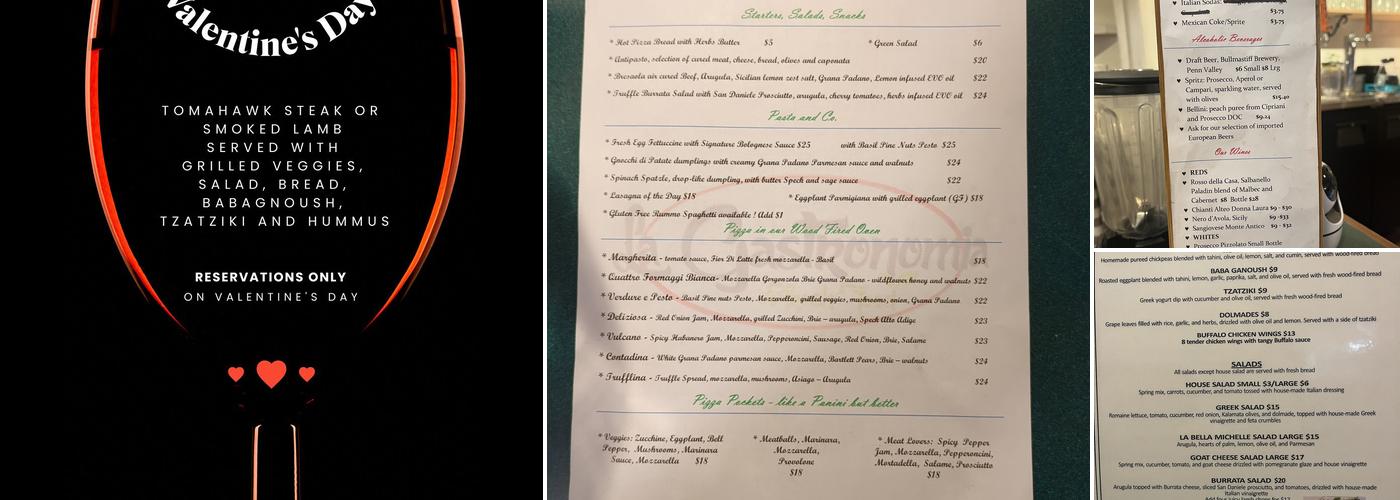 Valentine's Day
TOMAHAWK STEAK OR
SMOKED LAMB
SERVED WITH
GRILLED VEGGIES,
SALAD, BREAD,
BABAGNOUSH,
TZATZIKI AND HUMMUS
RESERVATIONS ONLY
ON VALENTINE'S DAY
Starters, Salads, Snacks
* Hot Pizza Bread with Herbs Butter $5 * Green Salad $6
* Antipasto, selection of cured meat, cheese, bread, olives and caponata $20
* Bresaola air cured Beef, Arugula, Sicilian lemon zest salt, Grana Padano, Lemon infused EVO oil $22
* Truffle Burrata Salad with San Daniele Prosciutto, arugula, cherry tomatoes, herbs infused EVO oil $24
Pasta and Co.
* Fresh Egg Fettuccine with Signature Bolognese Sauce $25 with Basil Pine Nuts Pesto $25
* Gnocchi di Patate dumplings with creamy Grana Padano Parmesan sauce and walnuts $24
* Spinach Spatzle, drop-like dumpling, with butter Speck and sage sauce $22
* Lasagna of the Day $18 * Eggplant Parmigiana with grilled eggplant (GF) $18
* Gluten Free Rummo Spaghetti available ! Add $1
Pizza in our Wood Fired Oven
* Margherita - tomato sauce, Fior Di Latte fresh mozzarella - Basil $18
* Quattro Formaggi Bianca- Mozzarella Gorgonzola Brie Grana Padano - wildflower honey and walnuts $22
* Verdure e Pesto - Basil Pine nuts Pesto, Mozzarella, grilled veggies, mushrooms, onion, Grana Padano $22
* Deliziosa - Red Onion Jam, Mozzarella, grilled Zucchini, Brie - arugula, Speck Alto Adige $23
* Vulcano - Spicy Habanero Jam, Mozzarella, Pepperoncini, Sausage, Red Onion, Brie, Salame $23
* Contadina - White Grana Padano parmesan sauce, Mozzarella, Bartlett Pears, Brie - walnuts $24
* Trufflina - Truffle Spread, mozzarella, mushrooms, Asiago - Arugula $24
Pizza Pockets - like a Panini but better
* Veggies: Zucchine, Eggplant, Bell
Pepper, Mushrooms, Marinara
Sauce, Mozzarella $18
* Meatballs, Marinara,
Mozzarella,
Provolone
$18
* Meat Lovers: Spicy Pepper
Jam, Mozzarella, Pepperoncini,
Mortadella, Salame, Prosciutto
$18
Italian Sodas:
$3.75
♥ Mexican Coke/Sprite $3.75
Alcoholic Beverages
♥ Draft Beer, Bullmastiff Brewery,
Penn Valley $6 Small $8 Lrg
♥ Spritz: Prosecco, Aperol or
Campari, sparkling water, served
with olives $15.40
♥ Bellini: peach puree from Cipriani
and Prosecco DOC $9.24
♥ Ask for our selection of imported
European Beers
Our Wines
♥ REDS
♥ Rosso della Casa, Salbanello
Paladin blend of Malbec and
Cabernet $8 Bottle $28
♥ Chianti Alteo Donna Laura $9 - $30
♥ Nero d'Avola, Sicily $9 - $33
♥ Sangiovese Monte Antico $9 - $32
♥ WHITES
♥ Prosecco Pizzolato Small Bottle
Homemade pureed chickpeas blended with tahini, olive oil, lemon, salt, and cumin, served with wood-fired bread
BABA GANOUSH $9
Roasted eggplant blended with tahini, lemon, garlic, paprika, salt, and olive oil, served with fresh wood-fired bread
TZATZIKI $9
Greek yogurt dip with cucumber and olive oil, served with fresh wood-fired bread
DOLMADES $8
Grape leaves filled with rice, garlic, and herbs, drizzled with olive oil and lemon. Served with a side of tzatziki
BUFFALO CHICKEN WINGS $13
8 tender chicken wings with tangy Buffalo sauce
SALADS
All salads except house salad are served with fresh bread
HOUSE SALAD SMALL $3/LARGE $6
Spring mix, carrots, cucumber, and tomato tossed with house-made Italian dressing
GREEK SALAD $15
Romaine lettuce, tomato, cucumber, red onion, Kalamata olives, and dolmade, topped with house-made Greek
vinaigrette and feta crumbles
LA BELLA MICHELLE SALAD LARGE $15
Arugula, hearts of palm, lemon, olive oil, and Parmesan
GOAT CHEESE SALAD LARGE $17
Spring mix, cucumber, tomato, and goat cheese drizzled with pomegranate glaze and house vinaigrette
BURRATA SALAD $20
Arugula topped with Burrata cheese, sliced San Daniele prosciutto, and tomatoes, drizzled with house-made
Italian vinaigrette